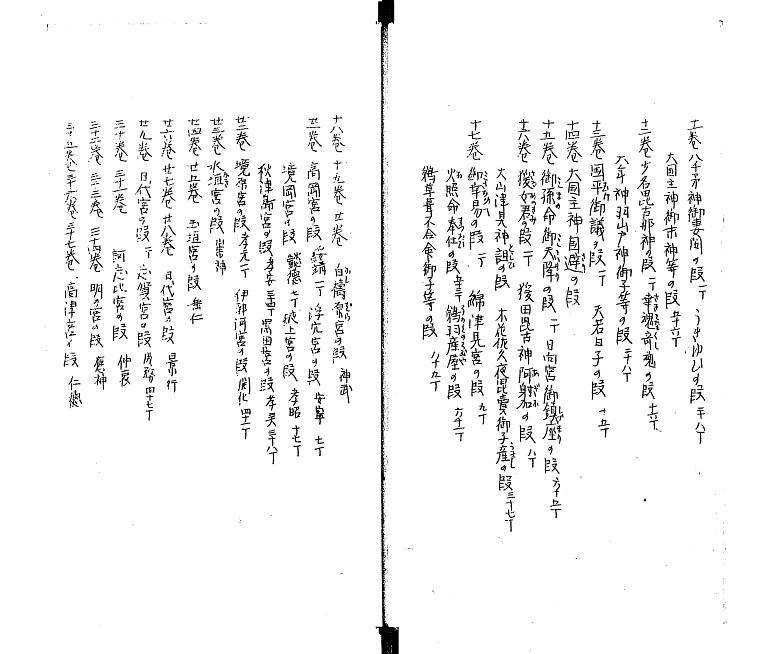 十一巻 八千矛神御妻問の段 一丁 うきゆひの段 二十八丁
大国主神御末神等の段 五十六丁
十二巻 少名毘古那神の段 一丁 幸魂奇魂の段 十六丁
大年神羽山戸神御子等の段 二十八丁
十三巻 国平御議の段 一丁 天若日子の段 十五丁
十四巻 大国主神国避の段
十五巻 御孫命御天降の段 一丁 日向宮御鎮座の段 六十五丁
十六巻 猨女君の段 一丁 猨田毘古神阿射加の段 八丁
大山津見神詛の段 木花佐久夜毘売御子産の段 三十七丁
十七巻 御幸易の段 一丁 綿津見宮の段 九丁
火照命奉仕の段 五十三丁 鵜羽産屋の段 六十一丁
鵜葺草葺不合命御子等の段 八十九丁
十八巻 十九巻 廿巻 白檮原宮の段 神武
廿一巻 高岡宮の段 綏靖 一丁 浮穴宮の段 安寧 七丁
境岡宮の段 懿徳 七丁 掖上宮の段 孝昭 十七丁
秋津嶋宮の段 孝安 三十四丁 黒田宮の段 孝霊 三十八丁
廿二巻 境原宮の段 孝元 一丁 伊邪河宮の段 開化 四十一丁
廿三巻 水垣宮の段 崇神
廿四巻 廿五巻 玉垣宮の段 垂仁
廿六巻 廿七巻 廿八巻 日代宮の段 景行
廿九巻 日代宮の段 一丁 志賀宮の段 成務 四十七丁
三十巻 三十一巻 訶志比宮の段 仲哀
三十二巻 三十三巻 三十四巻 明の宮の段 應神
三十五巻 三十六巻 三十七巻 高津宮の段 仁徳